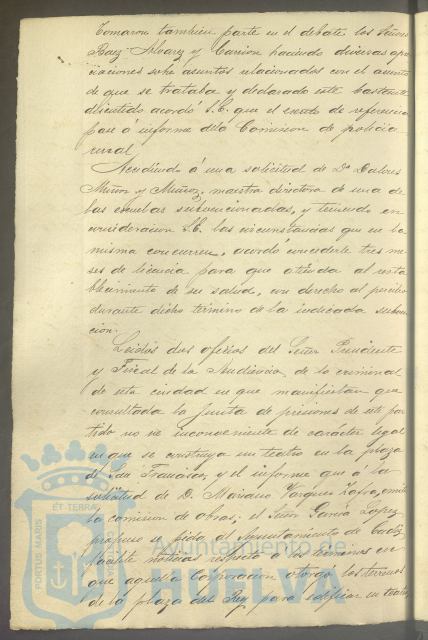 Tomaron tambien parte en el debate los Señores
Baez Alvarez y Carrion haciendo diversas apre
ciaciones sobre asuntos relacionados con el asunto
de que se trataba y declarado este bastante
discutido acordó S.E. que el escrito de referencia
pase á informe de la Comision de policia
rural.
Accediendo á una solicitud de Dª Dolores
Muñoz y Muñoz, maestra directora de una de
las escuelas subvencionadas, y teniendo en
consideracion S.E. las circunstancias que en la
misma concurren, acordó concederle tres me
ses de licencia para que atienda al esta
blecimiento de su salud, con derecho al percibo
durante dicho termino de la indicada subven
cion.
Leidos dos oficios del Señor Presidente
y Fiscal de la Audiencia de lo criminal
de esta ciudad en que manifiestan que
consultada la junta de prisiones de este par
tido no ve inconveniente de carácter legal
en que se construya un teatro en la plaza
de San Francisco, y el informe que á la
solicitud de D. Mariano Vazquez Zafra, emite
la comision de obras; el Señor Garcia Lopez
propuso se pida al Ayuntamiento de Cadiz
facilite noticias respecto á los terminos en
que aquella Corporacion otorgó los terrenos
de la plaza del Rey para edificar un teatro
PORTUS MARIS
ET TERRAE
Ayuntamiento de
HUELVA